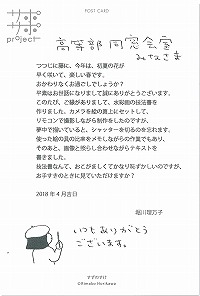 POST CARD
project
高等部同窓会室
みなさま
つつじに藤に、今年は、初夏の花が
早く咲いて、楽しい春です。
おかわりなくお過ごしでしょうか？
平素はお世話になりまして誠にありがとうございます。
このたび、ご縁がありまして、水彩画の技法書を
作りました。カメラを絵の真上にセットして、
リモコンで撮影しながら制作をしたのですが、
夢中で描いていると、シャッターを切るのを忘れます。
使った絵の具の出来をメモしながらの作業でもあり、
そのあと、画像と照らし合わせながらテキストを
書きました。
技法書なんて、おこがましくてかなり恥ずかしいのですが、
お手すきのときに見ていただけますか？
2018年4月吉日
堀川理万子
いつもありがとう
ございます。
すずのすけ
©Rimako Horikawa